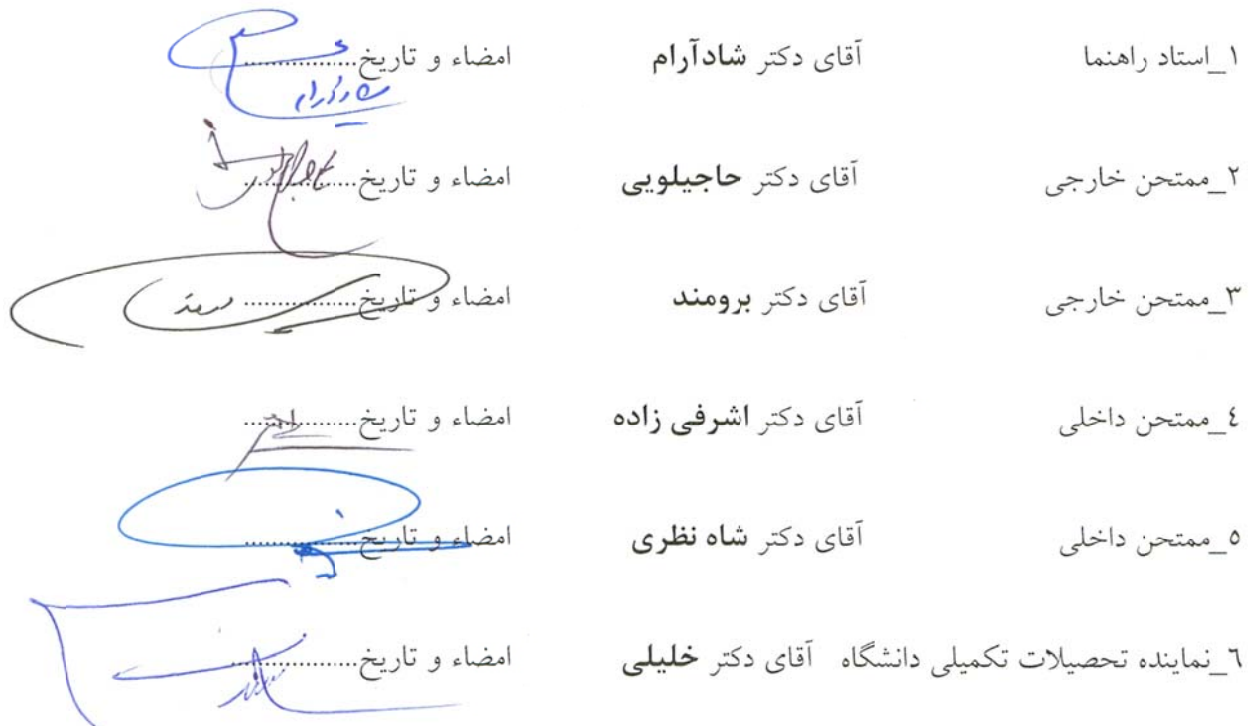 ۱_استاد راهنما آقای دکتر شادآرام امضاء و تاریخ................
۲_ممتحن خارجی آقای دکتر حاجیلویی امضاء و تاریخ................
۳_ممتحن خارجی آقای دکتر برومند امضاء و تاریخ................
٤_ممتحن داخلی آقای دکتر اشرفی زاده امضاء و تاریخ................
۵_ممتحن داخلی آقای دکتر شاه نظری امضاء و تاریخ................
٦_نماینده تحصیلات تکمیلی دانشگاه آقای دکتر خلیلی امضاء و تاریخ................